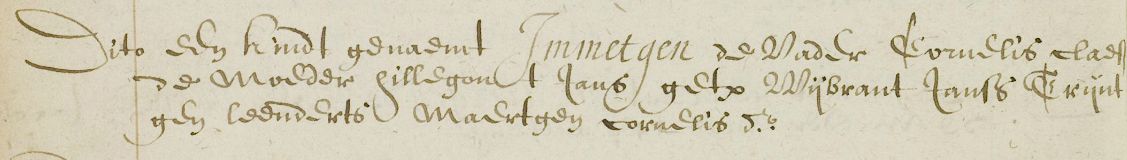 Dito een kindt genaemt Immetgen de Vader Cornelis Claess
de Moeder hillegont Jans get× Wijbrant Janss Trijnt
gen leenderts Maertgen Cornelis d.r